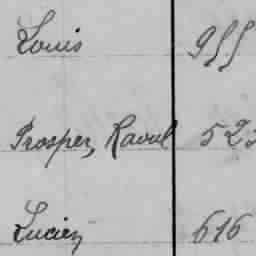 Louis 955
Prosper, Raoul 523
Lucien 616